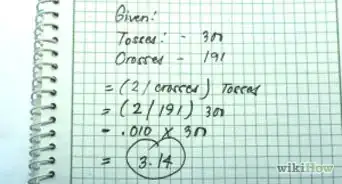 Given:
Tosses: - 300
Crosses - 191
= (2/crosses) Tosses
= (2/191) 300
= .010 X 300
= 3.14
wikiHow